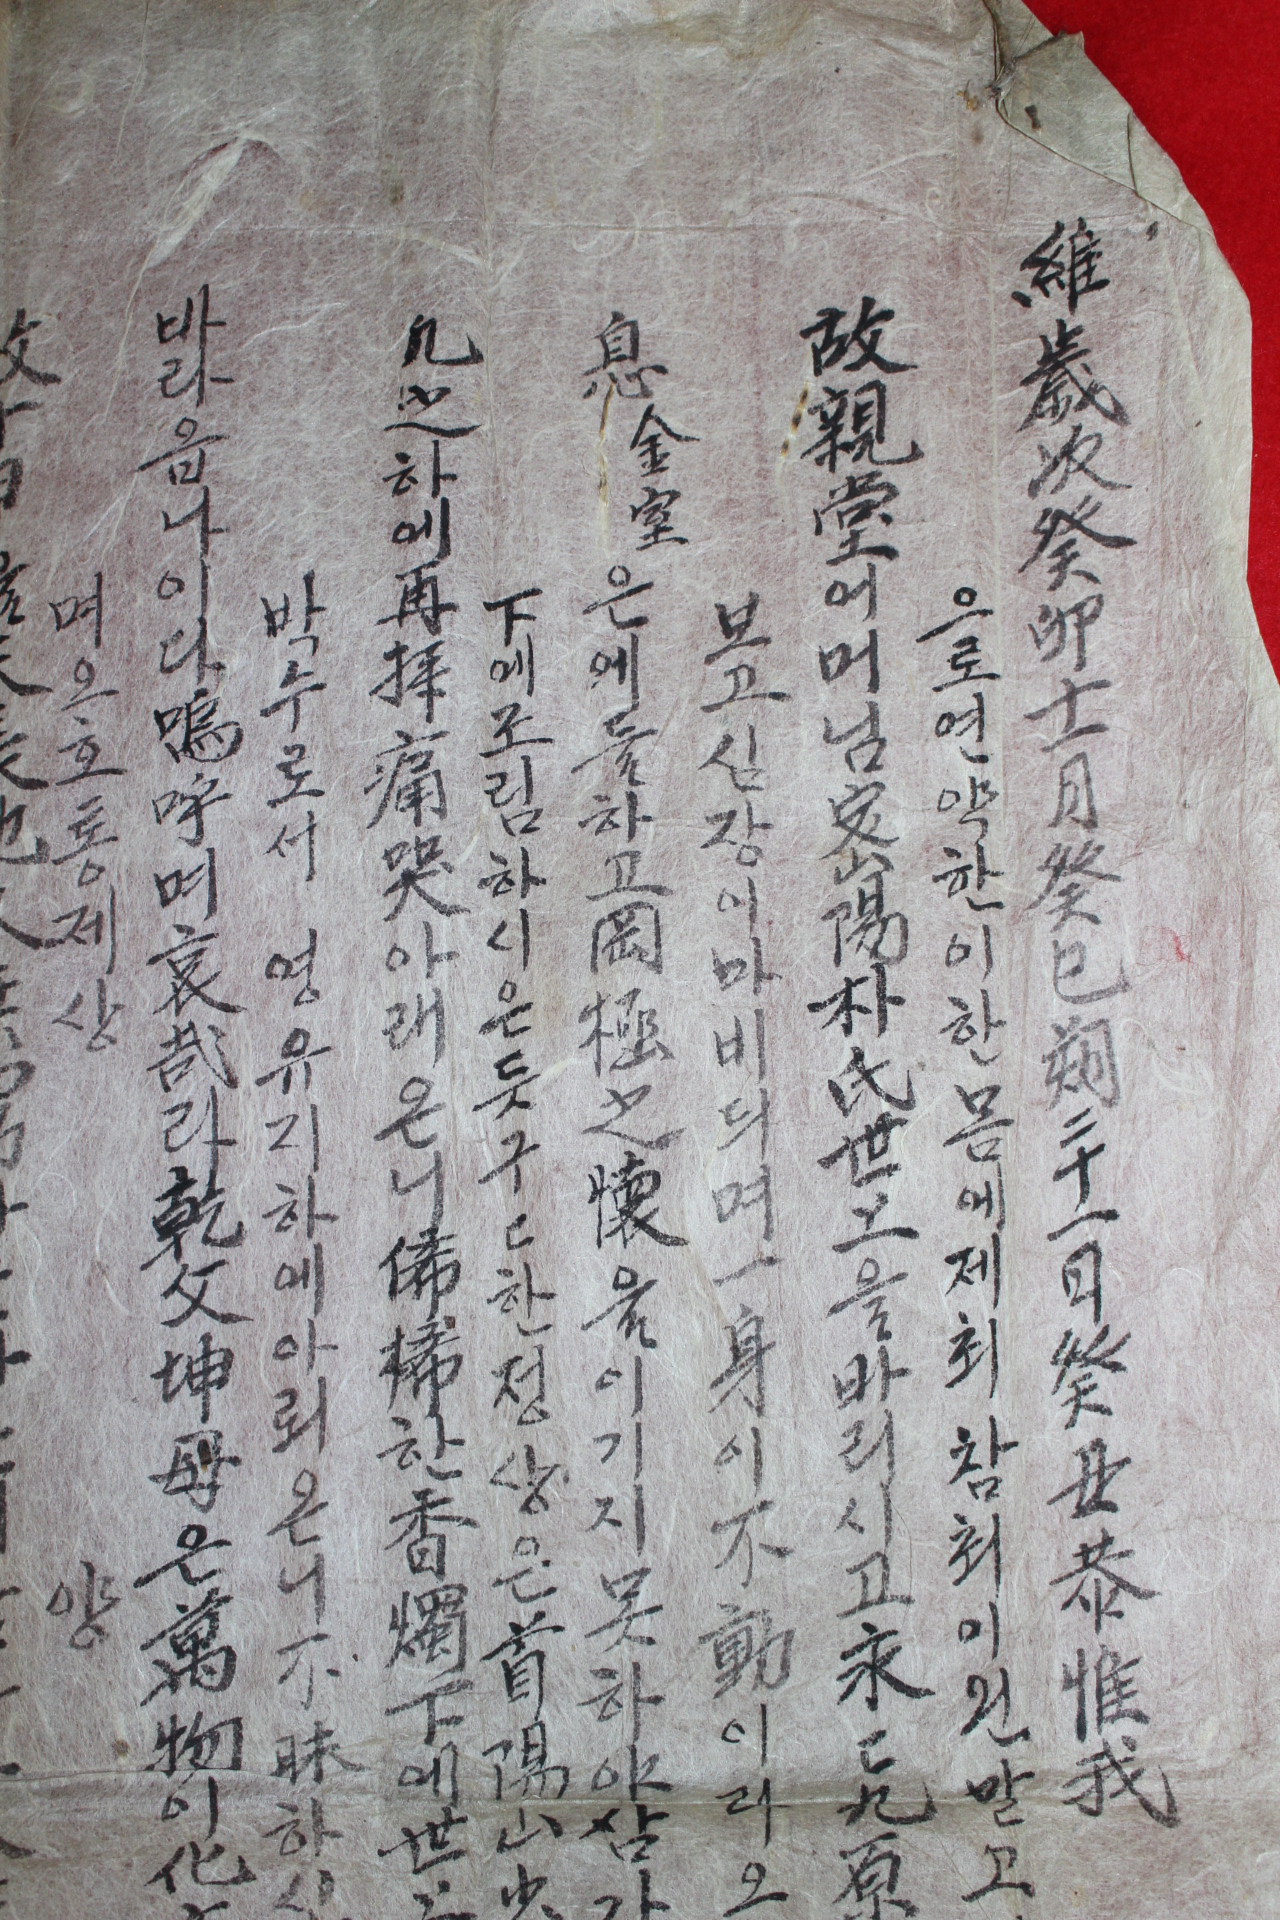 維歲次癸卯十一月癸巳朔二十一日癸丑恭惟我
으로연약한이한몸에제최참최이원말고
故親堂어머님密陽朴氏世上을바리시고永亡九原
보고심장이마비되며一身이不動이라오
息金室은에통하고罔極之懷을이기지못하야삼가
下에조림하시은듯구ㄷ한정상은首陽山
几之하에再拜痛哭아래온니俙悕한香燭下에世
박수로서 영유지하에아뢰온니不昧하시
바라읍나이다嗚呼며哀哉라乾父坤母은萬物이化
며오호통제상 양